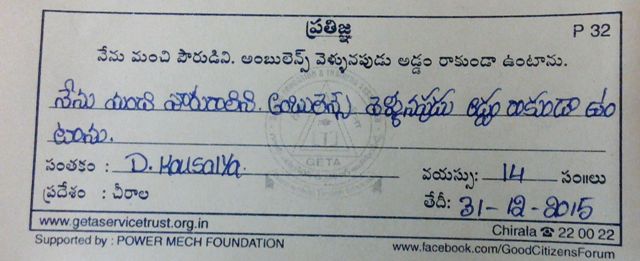 ప్రతిజ్ఞ
P 32
నేను మంచి పౌరుడిని. అంబులెన్స్ వెళ్ళునపుడు అడ్డం రాకుండా ఉంటాను.
నేను మంచి పౌరురాలిని. అంబులెన్స్ వెళ్ళేనప్పుడు అడ్డు రాకుండా ఉం
టాను.
సంతకం : D. Kousalya
వయస్సు: 14 సం॥లు
ప్రదేశం : చీరాల
తేదీ: 31-12-2015
GETA
www.getaservicetrust.org.in
Chirala ☎ 22 00 22
Supported by : POWER MECH FOUNDATION
www.facebook.com/GoodCitizensForum